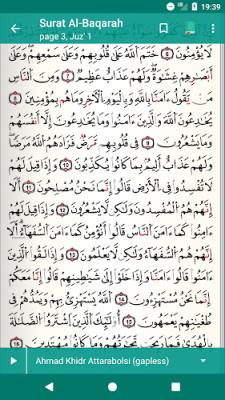 19:39
Surat Al-Baqarah
page 3, Juz' 1
لَا يُؤْمِنُونَ ٦ خَتَمَ ٱللَّهُ عَلَىٰ قُلُوبِهِمْ وَعَلَىٰ سَمْعِهِمْ وَعَلَىٰٓ
أَبْصَٰرِهِمْ غِشَٰوَةٌ وَلَهُمْ عَذَابٌ عَظِيمٌ ٧ وَمِنَ ٱلنَّاسِ
مَن يَقُولُ ءَامَنَّا بِٱللَّهِ وَبِٱلْيَوْمِ ٱلْءَاخِرِ وَمَا هُم بِمُؤْمِنِينَ ٨
يُخَٰدِعُونَ ٱللَّهَ وَٱلَّذِينَ ءَامَنُوا۟ وَمَا يَخْدَعُونَ إِلَّآ أَنفُسَهُمْ
وَمَا يَشْعُرُونَ ٩ فِى قُلُوبِهِم مَّرَضٌ فَزَادَهُمُ ٱللَّهُ مَرَضًا
وَلَهُمْ عَذَابٌ أَلِيمٌۢ بِمَا كَانُوا۟ يَكْذِبُونَ ١٠ وَإِذَا قِيلَ لَهُمْ
لَا تُفْسِدُوا۟ فِى ٱلْأَرْضِ قَالُوٓا۟ إِنَّمَا نَحْنُ مُصْلِحُونَ ١١
أَلَآ إِنَّهُمْ هُمُ ٱلْمُفْسِدُونَ وَلَٰكِن لَّا يَشْعُرُونَ ١٢ وَإِذَا قِيلَ
لَهُمْ ءَامِنُوا۟ كَمَآ ءَامَنَ ٱلنَّاسُ قَالُوٓا۟ أَنُؤْمِنُ كَمَآ ءَامَنَ ٱلسُّفَهَآءُ أَلَآ
إِنَّهُمْ هُمُ ٱلسُّفَهَآءُ وَلَٰكِن لَّا يَعْلَمُونَ ١٣ وَإِذَا لَقُوا۟ ٱلَّذِينَ
ءَامَنُوا۟ قَالُوٓا۟ ءَامَنَّا وَإِذَا خَلَوْا۟ إِلَىٰ شَيَٰطِينِهِمْ قَالُوٓا۟ إِنَّا مَعَكُمْ
إِنَّمَا نَحْنُ مُسْتَهْزِءُونَ ١٤ ٱللَّهُ يَسْتَهْزِئُ بِهِمْ وَيَمُدُّهُمْ فِى
طُغْيَٰنِهِمْ يَعْمَهُونَ ١٥ أُو۟لَٰٓئِكَ ٱلَّذِينَ ٱشْتَرَوُا۟ ٱلضَّلَٰلَةَ
بِٱلْهُدَىٰ فَمَا رَبِحَت تِّجَٰرَتُهُمْ وَمَا كَانُوا۟ مُهْتَدِينَ
Ahmad Khidr Attarabolsi (gapless)